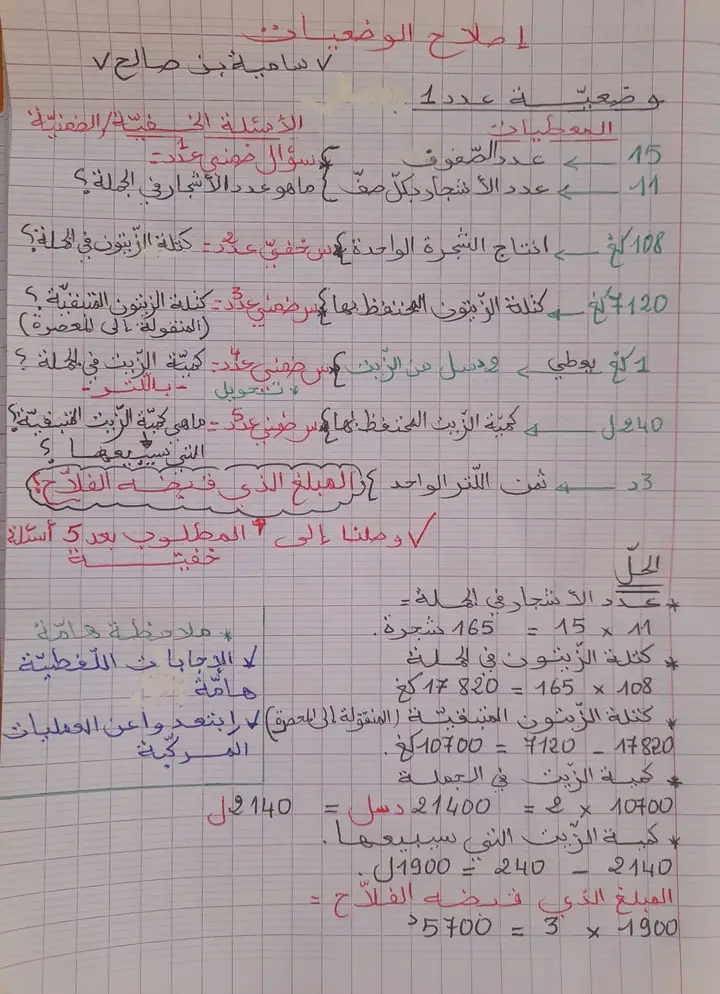 إصلاح الوضعيات
√ سامية بن صالح √
وضعيّة عدد 1
المعطيات
الأسئلة الخفيّة/الضمنيّة
15 ← عدد الصّفوف } سؤال ضمني عدد 1 =
11 ← عدد الأشجار بكلّ صفّ } ما هو عدد الأشجار في الجملة؟
108 كغ ← انتاج الشجرة الواحدة } س خفيّ عدد 2 = كتلة الزّيتون في الجملة؟
7120 كغ ← كتلة الزّيتون المحتفظ بها } س ضمني عدد 3 = كتلة الزيتون المتبقيّة؟
(المنقولة إلى المعصرة)
1 كغ يعطي ← 2 دسل من الزّيت } س ضمني عدد 4 = كميّة الزّيت في الجملة؟
تحويل - باللتر -
240 ل ← كميّة الزّيت المحتفظ بها } س ضمني عدد 5 = ماهي كميّة الزّيت المتبقيّة؟
التي سيبيعها؟
3 د ← ثمن اللّتر الواحد } المبلغ الذي قبضه الفلاّح؟
√ وصلنا إلى المطلوب بعد 5 أسئلة
خفيّة
الحلّ
* عدد الأشجار في الجملة =
11 × 15 = 165 شجرة.
* كتلة الزّيتون في الجملة
108 × 165 = 17 820 كغ
* كتلة الزّيتون المتبقيّة (المنقولة إلى المعصرة)
17820 - 7120 = 10700 كغ.
* كمية الزّيت في الجملة
10700 × 2 = 21400 دسل = 2140 ل
* كمية الزّيت التي سيبيعها.
2140 - 240 = 1900 ل.
المبلغ الذي قبضه الفلاّح =
1900 × 3 = 5700 د
* ملاحظة هامّة
√ الإجابات اللّفظيّة
هامّة
√ إبتعدوا عن العمليات
المركّبة